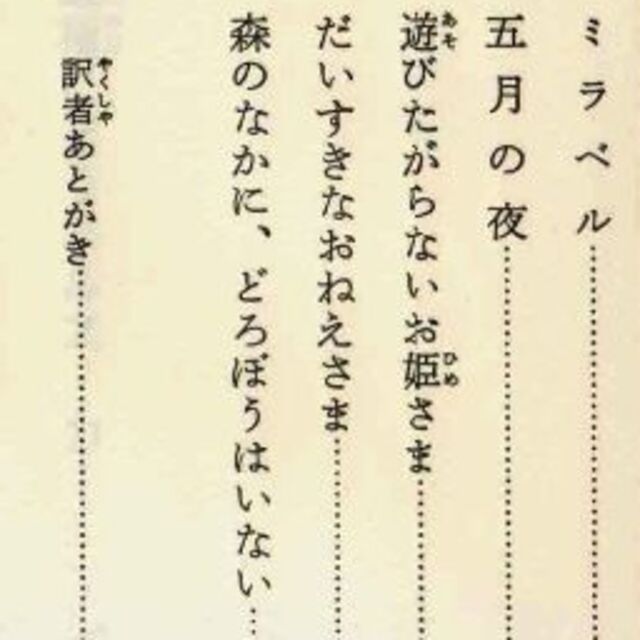 ミラベル
五月の夜
遊びたがらないお姫さま
だいすきなおねえさま
森のなかに、どろぼうはいない
訳者あとがき